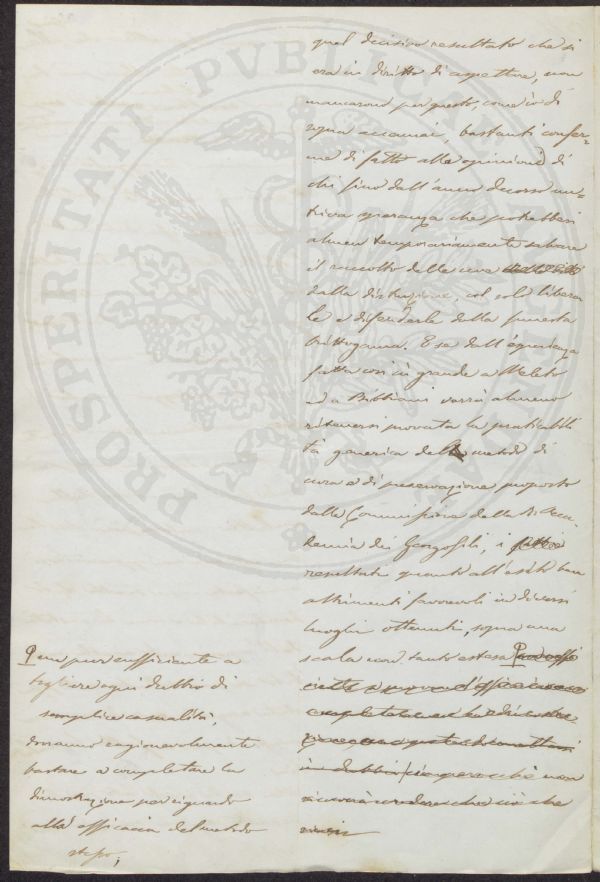 PROSPERITATI PUBLICAE AUGENDAE
quel decisivo resultato che si
era in diritto di aspettare, non
mancarono per questo, come ò di
sopra accennai, bastanti confer-
me di fatto alla opinione di
chi fino dall'anno decorso nu-
triva speranza che potrebbesi
almen temporariamente salvare
il raccolto delle uve
dalla distruzione, col solo libera
le e difenderle dalla funesta
Crittogama. E se dall'esperienza
fatta così in grande a Meleto
e a Bibbiani vorrà almeno
ritenersi provata la praticabili
tà generica del metodo di
cura e di preservazione proposto
dalla Commissione della R. Acca-
demia dei Georgofili, i
resultati quanto all'esito ben
altrimenti favorevoli in diversi
luoghi ottenuti, sopra una
scala non tanto estesa
in dubbio, imperocchè non
si vorrà credere che ciò che
e pur sufficiente a
togliere ogni dubbio di
semplice casualità,
dovranno ragionevolmente
bastare a completare la
dimostrazione per riguardo
alla efficacia del metodo
stesso,